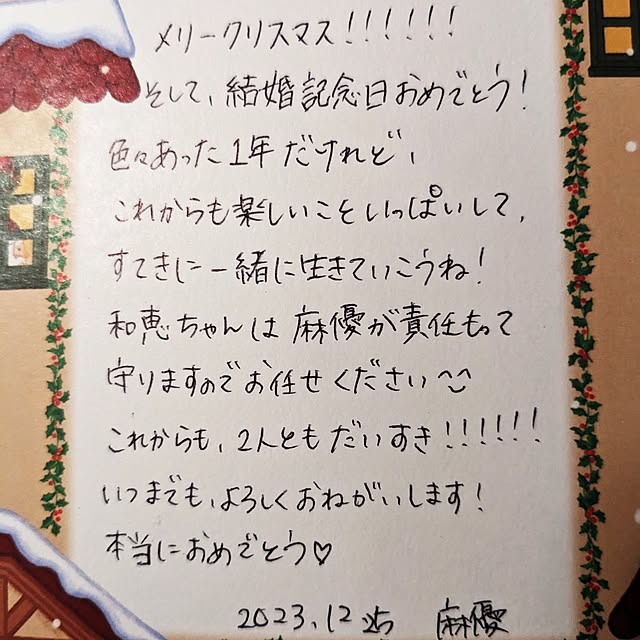 メリークリスマス!!!!!!
そして、結婚記念日おめでとう!
色々あった1年だけれど、
これからも楽しいこといっぱいして、
すてきに一緒に生きていこうね!
和恵ちゃんは麻優が責任もって
守りますのでお任せください^^
これからも、2人ともだいすき!!!!!!
いつまでも、よろしくおねがいします!
本当におめでとう♡
2023.12 麻優